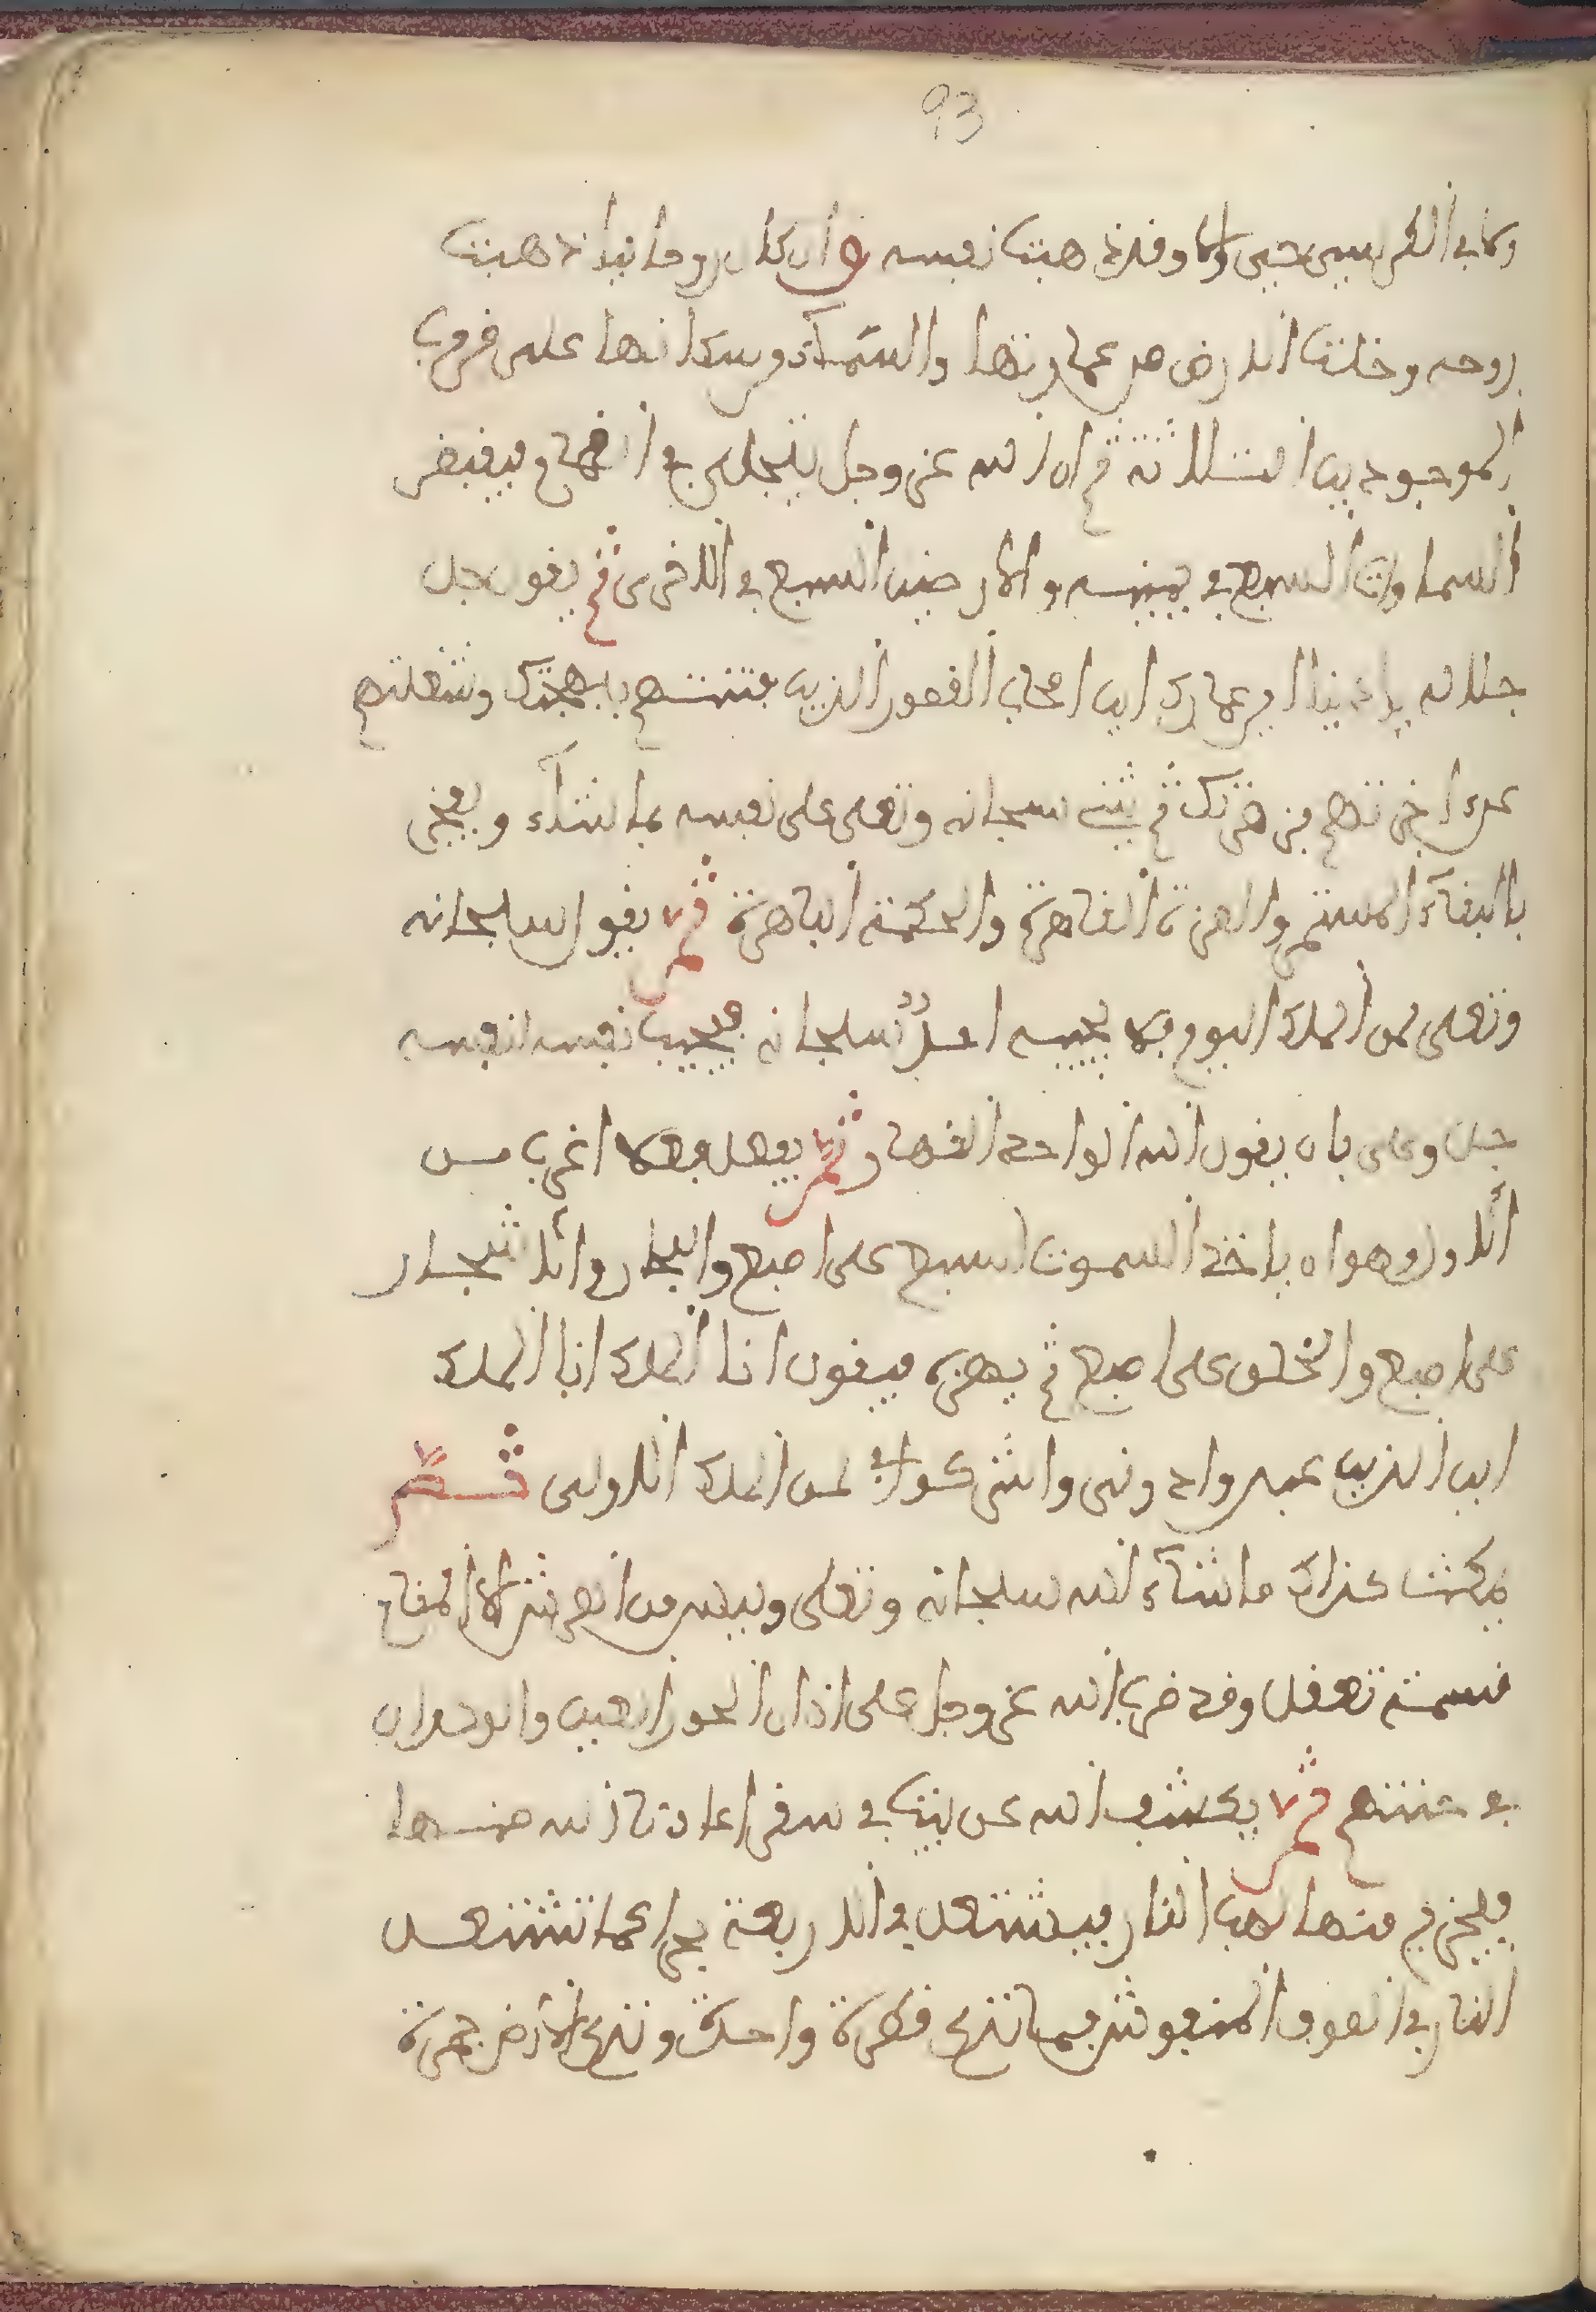 93
ولا في الكرسي حي إلا وقد ذهبت نفسه وان كان روحانيا ذهبت
روحه وخلت الارض من عمارتها والسماء من سكانها على ضروب
الموجودين الثلاثة ثم ان الله عز وجل يتجلى في الغمام فيقبض
السماوات السبع في يمينه والارضين السبع في الاخرى ثم يقول جل
جلاله يا دنيا اين عمارك اين اصحاب القصور الذين فتنتهم بهجتك وشغلتهم
عن اخرتهم زهرتك ثم يثني سبحانه وتعلى على نفسه بما شاء ويفخر
بالبقاء المستمر والعزة القاهرة والحكمة الباهرة ثم يقول سبحانه
وتعلى لمن الملك اليوم فلا يجيبه احد سبحانه فيجيب نفسه لنفسه
جل وعلى بان يقول الله الواحد القهار ثم يفعل فعلا اغرب من
الاول وهو ان ياخذ السموت السبع على اصبع والبحار والاشجار
على اصبع والخلق على اصبع ثم يهزه فيقول انا الملك انا الملك
اين الذين عبدوا دوني واشركوا بي لمن الملك الاولى ثم
يمكث كذلك ما شاء الله سبحانه وتعلى وليس من العرش الى المقام
نسمة تعقل وقد ضرب الله عز وجل على اذان الحور العين والولدان
في جنتهم ثم يكشف الله عن بيت في سقر اعاذنا الله منها
فيخرج منها لهب النار فيشتعل في الاربعة بحرا كما تشتعل
النار في الصوف المنفوش فما تذع قطرة واحدة وتذع الارض جمرة